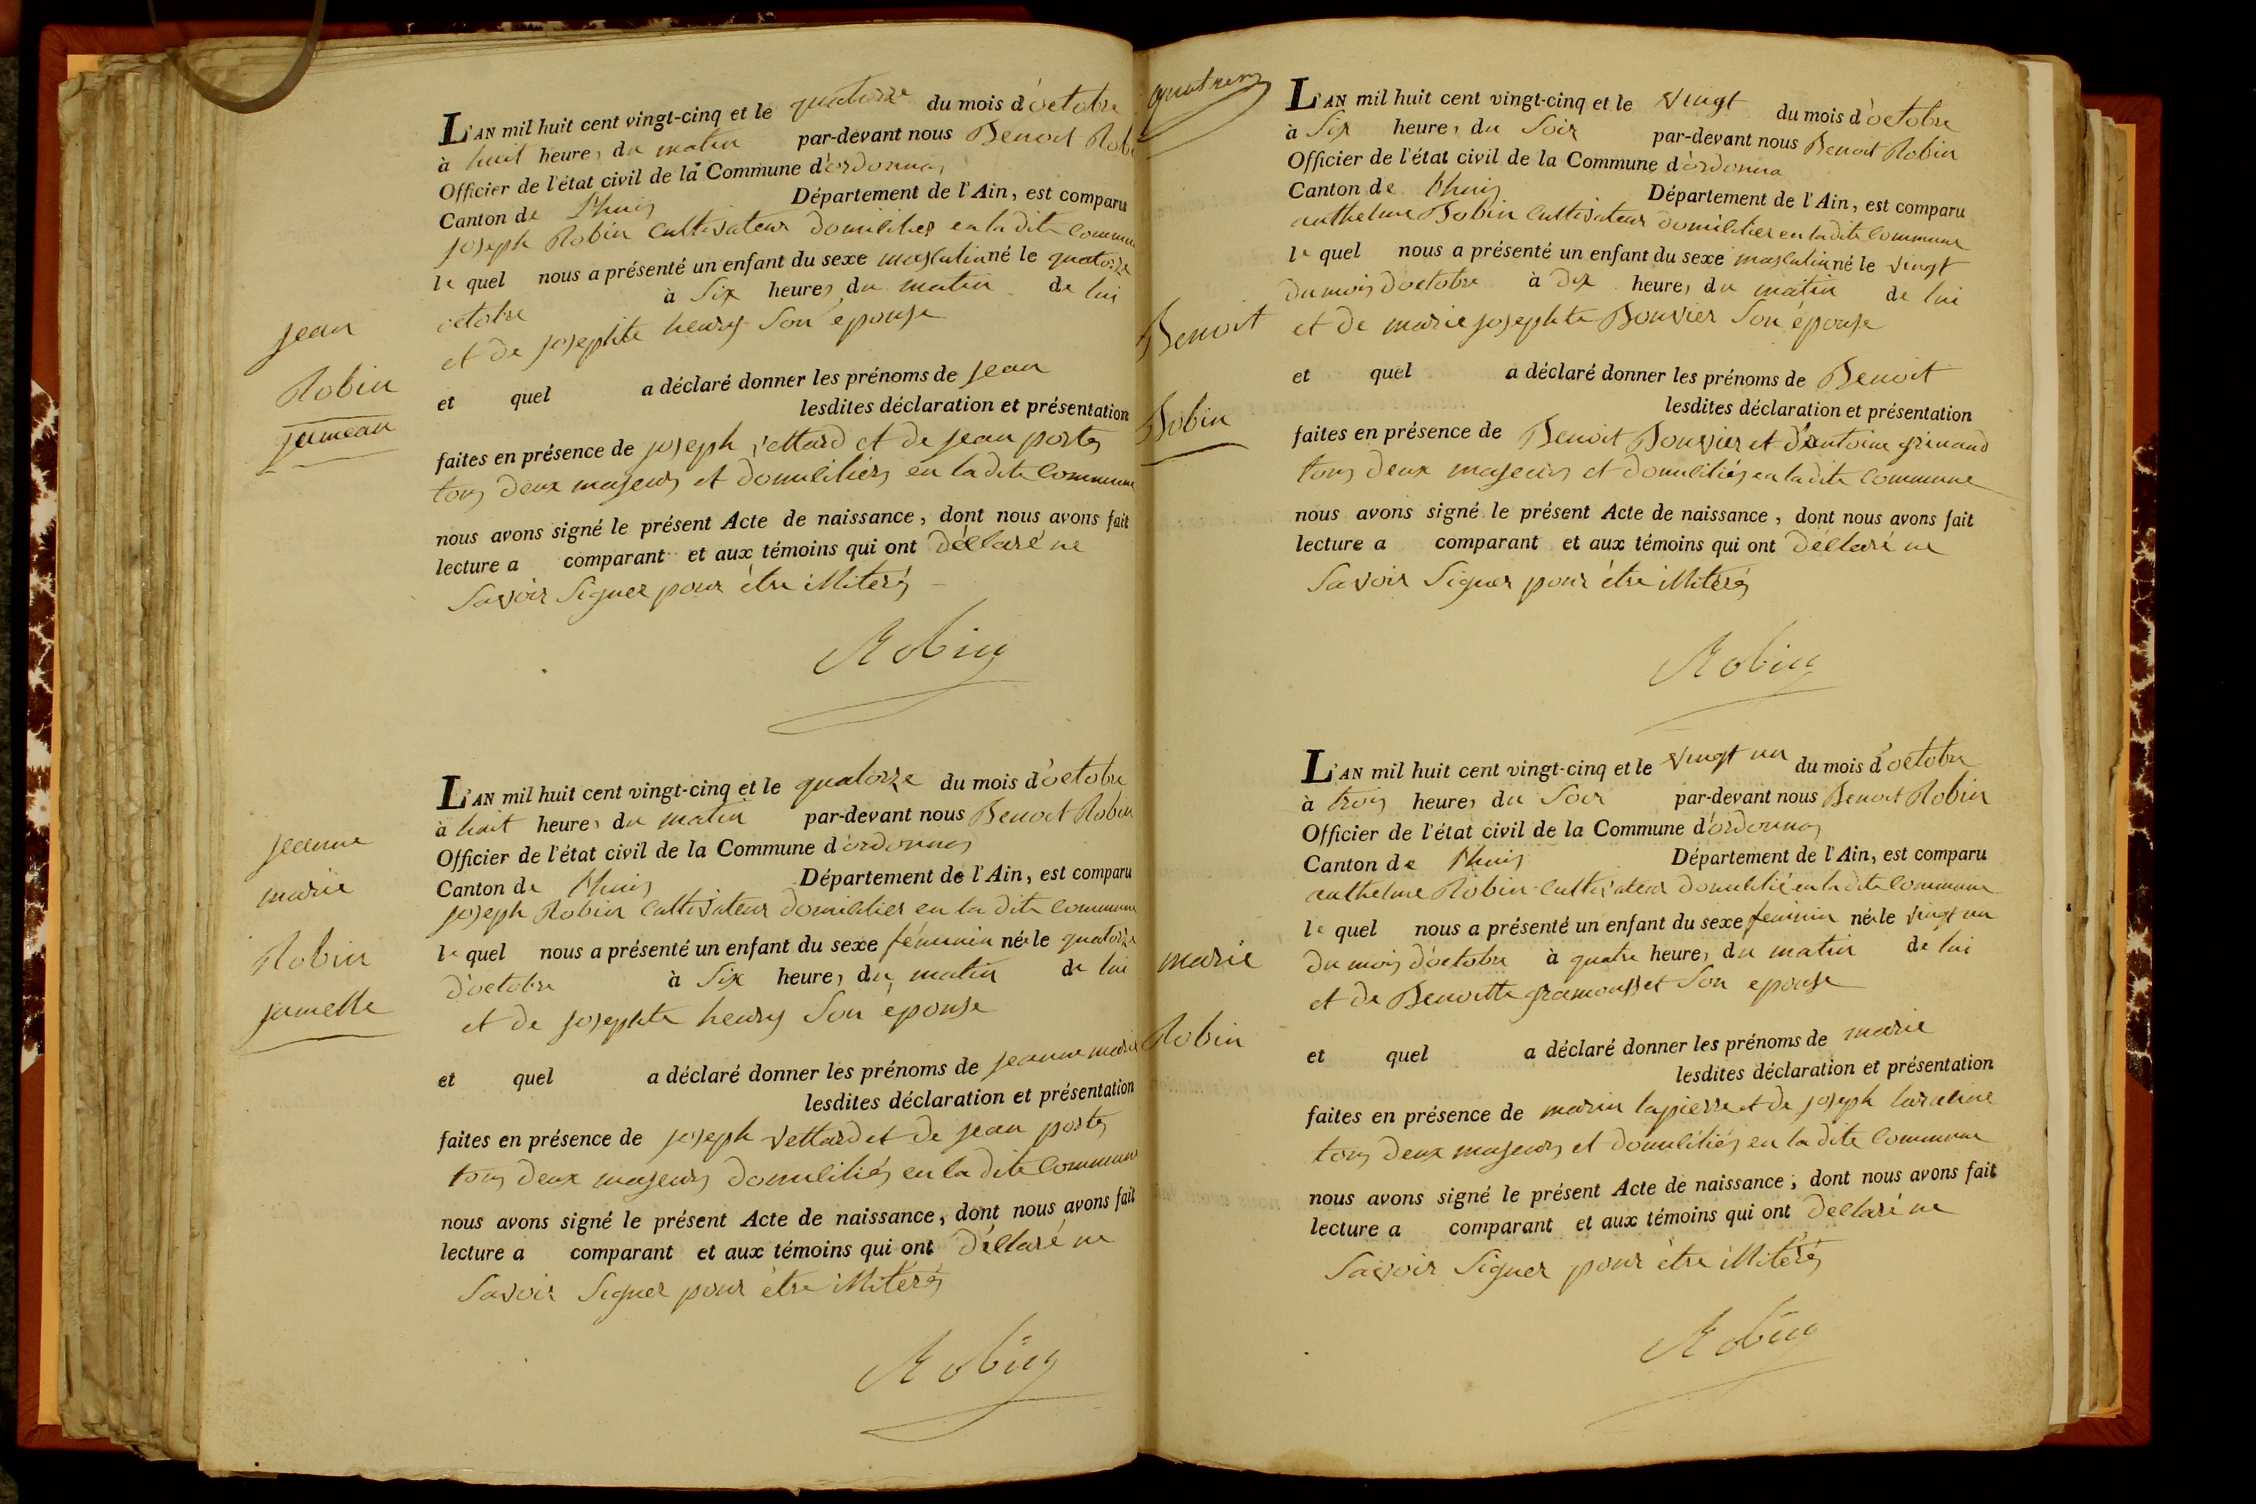 Jean
Robin
jumeau
L'AN mil huit cent vingt-cinq et le quatorze du mois d'octobre
à huit heures du matin par-devant nous Benoit Robin
Officier de l'état civil de la Commune d'ordonnas
Canton de Lhuis Département de l'Ain, est comparu
joseph Robin Cultivateur domicilier en la dite Commune
le quel nous a présenté un enfant du sexe masculin né le quatorze
octobre à Six heures du matin de lui
et de josephte henry Son épouse
et quel a déclaré donner les prénoms de jean
lesdites déclaration et présentation
faites en présence de joseph vettard et de jean portes
tous deux majeurs et domiciliés en la dite Commune
nous avons signé le présent Acte de naissance, dont nous avons fait
lecture a comparant et aux témoins qui ont déclaré ne
Savoir Signer pour être illiterés
Robin
jeanne
marie
Robin
jumelle
L'AN mil huit cent vingt-cinq et le quatorze du mois d'octobre
à huit heures du matin par-devant nous Benoit Robin
Officier de l'état civil de la Commune d'ordonnas
Canton de Lhuis Département de l'Ain, est comparu
joseph Robin Cultivateur domicilier en la dite Commune
le quel nous a présenté un enfant du sexe féminin née le quatorze
d'octobre à Six heures du matin de lui
et de josephte henry Son épouse
et quel a déclaré donner les prénoms de jeanne marie
lesdites déclaration et présentation
faites en présence de joseph vettard et de jean portes
tous deux majeurs domiciliés en la dite Commune
nous avons signé le présent Acte de naissance, dont nous avons fait
lecture a comparant et aux témoins qui ont déclaré ne
Savoir Signer pour être illiterés
Robin
Benoit
Robin
L'AN mil huit cent vingt-cinq et le vingt du mois d'octobre
à Six heures du Soir par-devant nous Benoit Robin
Officier de l'état civil de la Commune d'ordonna
Canton de Lhuis Département de l'Ain, est comparu
anthelme Robin Cultivateur domicilier en la dite Commune
le quel nous a présenté un enfant du sexe masculin né le vingt
du mois d'octobre à dix heures du matin de lui
et de marie josephte Bouvier Son épouse
et quel a déclaré donner les prénoms de Benoit
lesdites déclaration et présentation
faites en présence de Benoit Bouvier et d'antoine grinand
tous deux majeurs et domiciliés en la dite Commune
nous avons signé le présent Acte de naissance, dont nous avons fait
lecture a comparant et aux témoins qui ont déclaré ne
Savoir Signer pour être illiterés
Robin
marie
Robin
L'AN mil huit cent vingt-cinq et le vingt un du mois d'octobre
à trois heures du Soir par-devant nous Benoit Robin
Officier de l'état civil de la Commune d'ordonnas
Canton de Lhuis Département de l'Ain, est comparu
anthelme Robin Cultivateur domicilié en la dite Commune
le quel nous a présenté un enfant du sexe feminin née le vingt un
du mois d'octobre à quatre heures du matin de lui
et de Benoitte gramousset Son epouse
et quel a déclaré donner les prénoms de marie
lesdites déclaration et présentation
faites en présence de marin lapierre et de joseph
tous deux majeurs et domiciliés en la dite Commune
nous avons signé le présent Acte de naissance, dont nous avons fait
lecture a comparant et aux témoins qui ont déclaré ne
Savoir Signer pour être illiterés
Robin